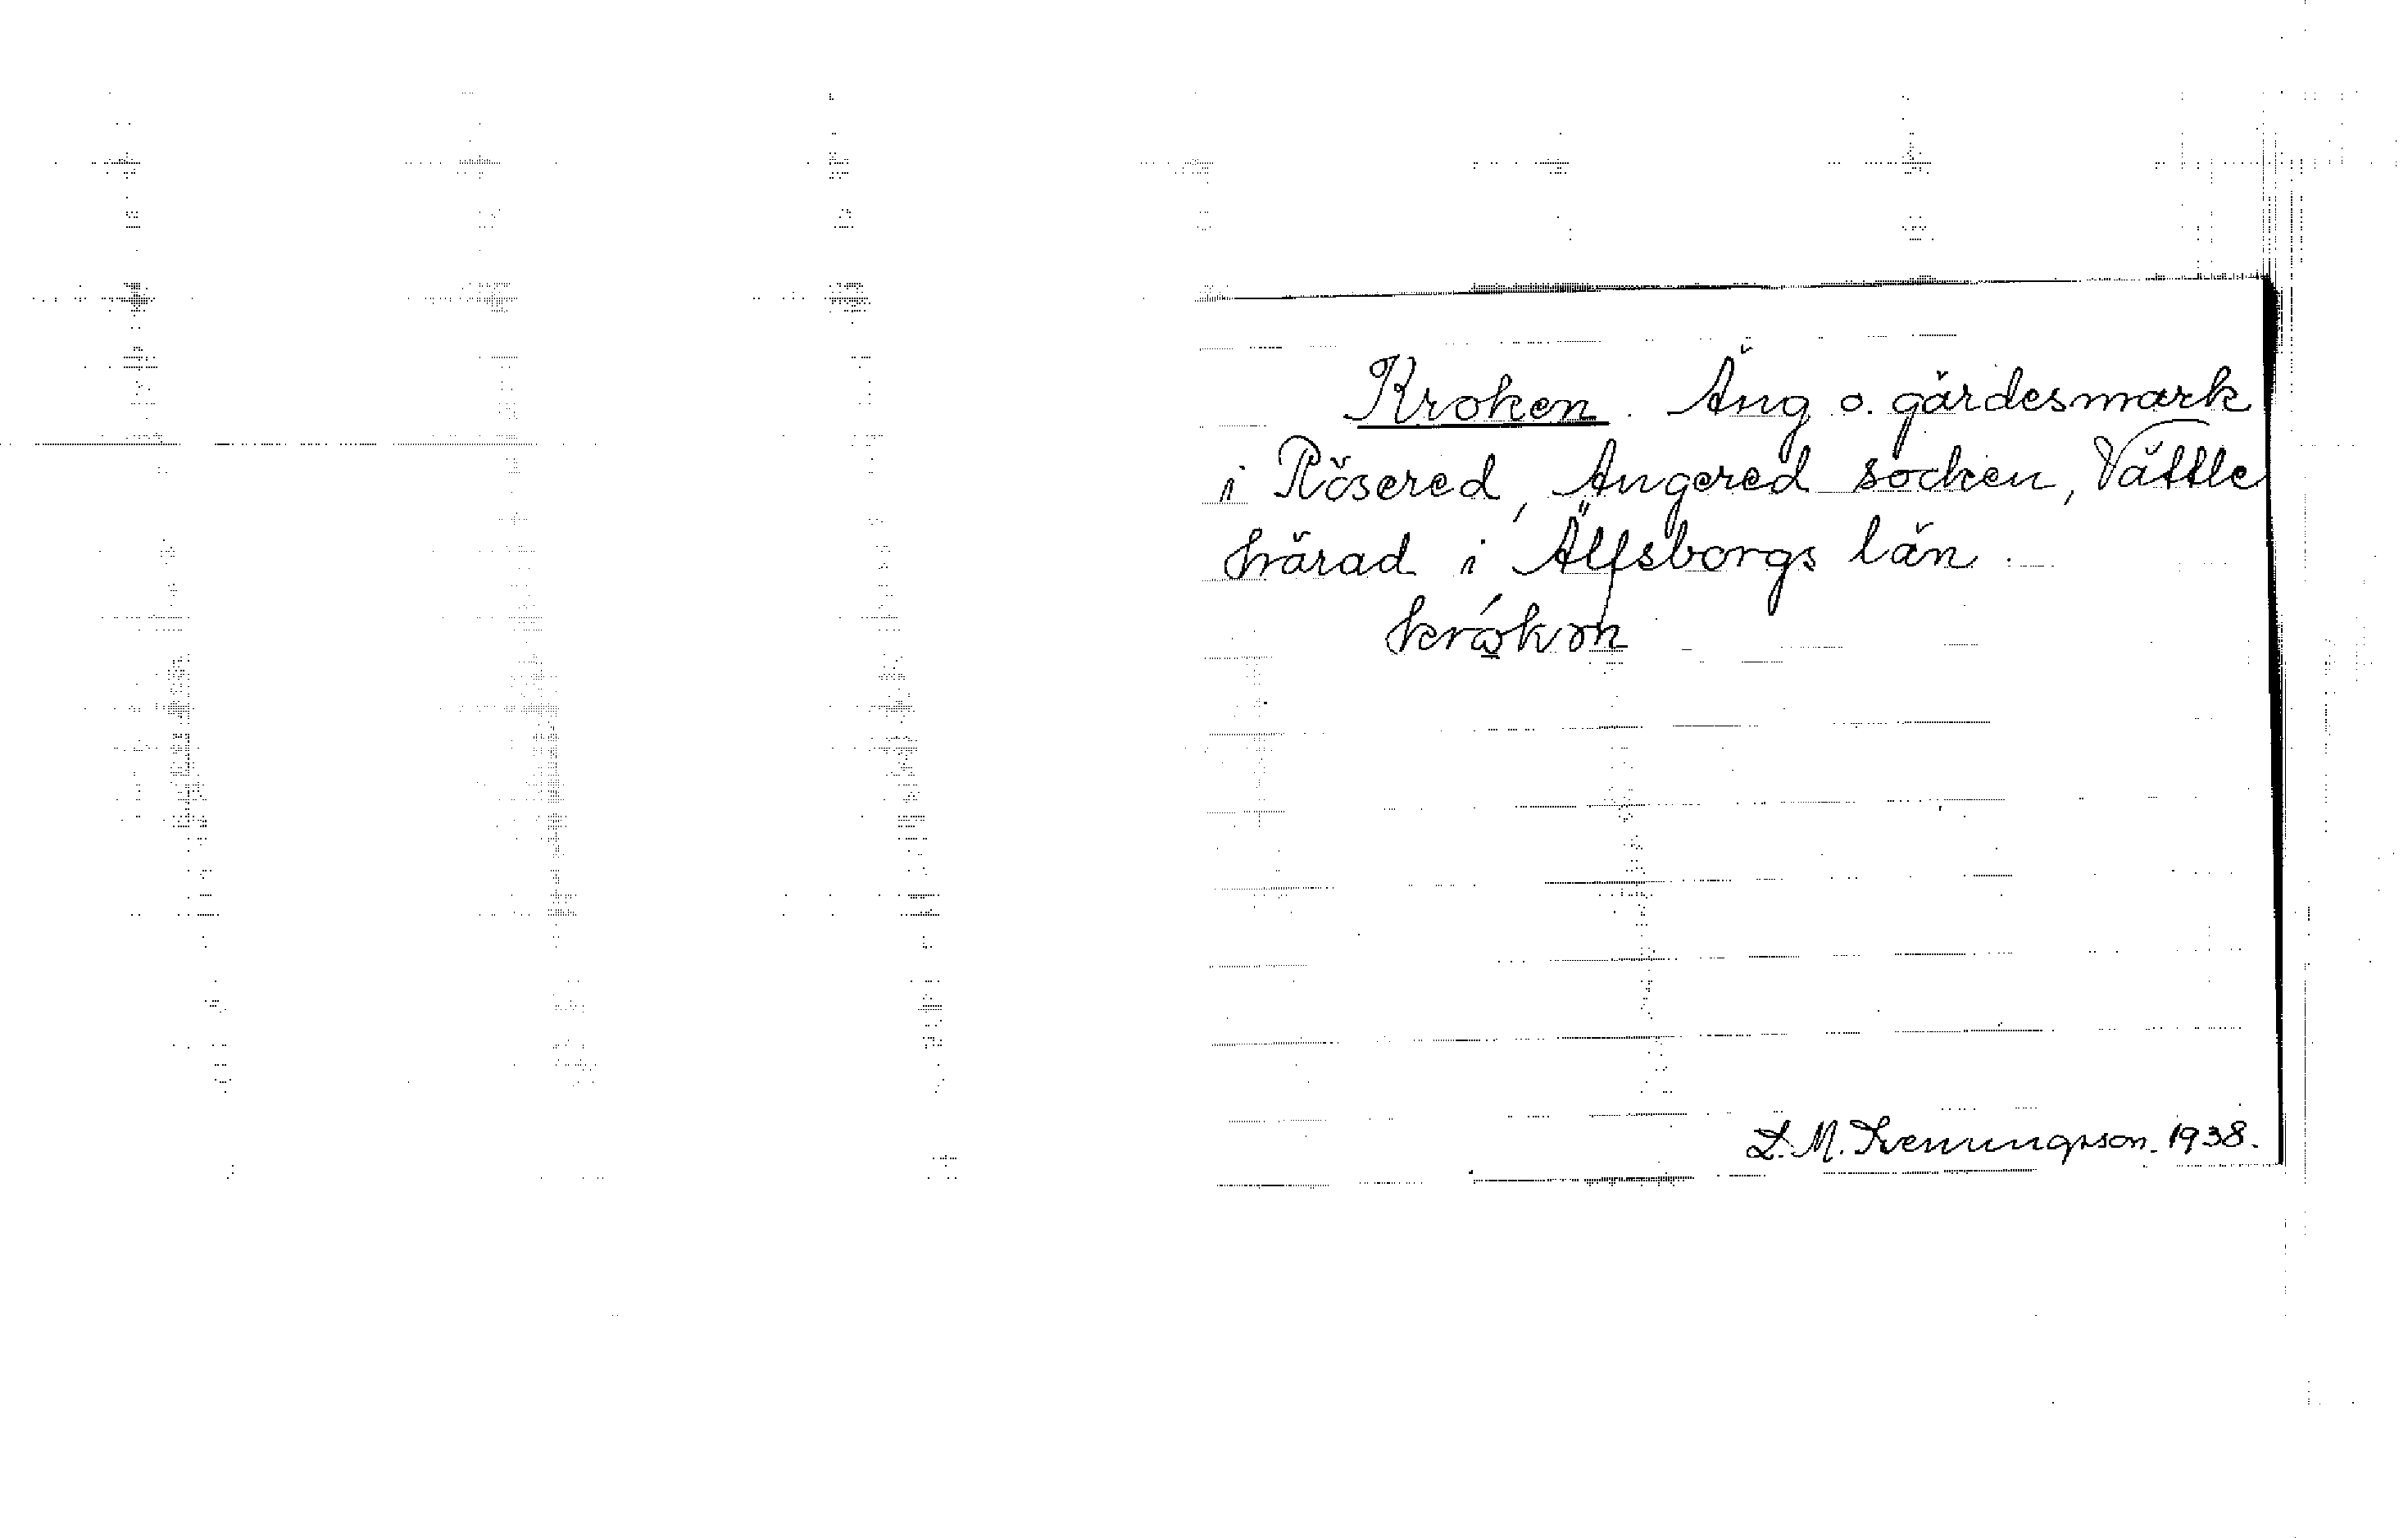 Kroken. Äng o. gärdesmark
i Rösered, Angered socken, Vättle
härad i Älfsborgs län.
krókɷn
L. M. Svenungsson. 1938.